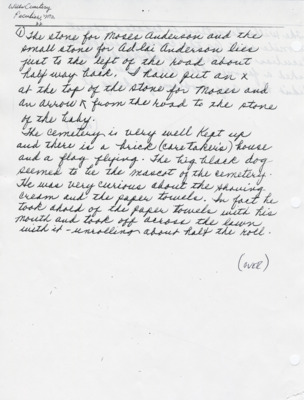 Cemetery
① The stone for Moses Anderson and the
small stone for Adlai Anderson lies
just to the left of the road about
half way back. I have put an X
at the top of the stone for Moses and
an arrow ↖ from the road to the stone
of the baby.
The cemetery is very well kept up
and there is a brick (caretaker's) house
and a flag flying. The big black dog
seemed to be the mascot of the cemetery.
He was very curious about the shaving
cream and the paper towels. In fact he
took ahold of the paper towels with his
mouth and took off across the lawn
with it - unrolling about half the roll.
(over)